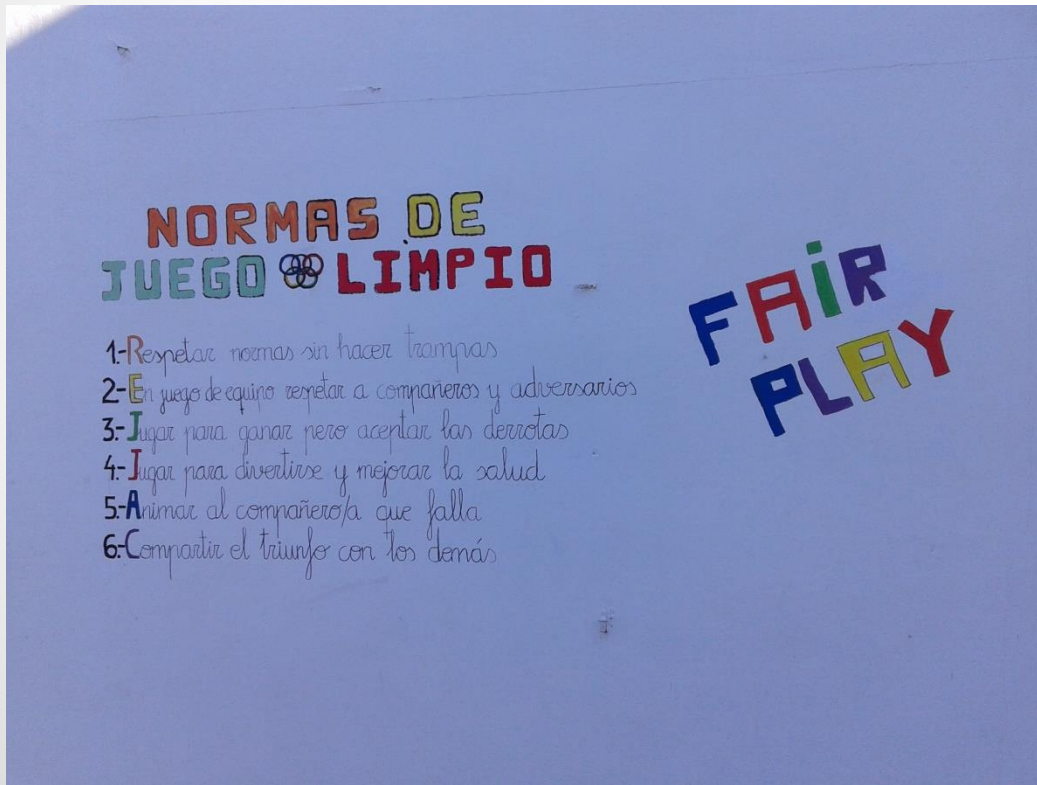 NORMAS DE
JUEGO LIMPIO
1.-Respetar normas sin hacer trampas
2-En juego de equipo respetar a compañeros y adversarios
3.-Jugar para ganar pero aceptar las derrotas
4.-Jugar para divertirse y mejorar la salud
5.-Animar al compañero/a que falla
6.-Compartir el triunfo con los demás
FAiR
PLAY